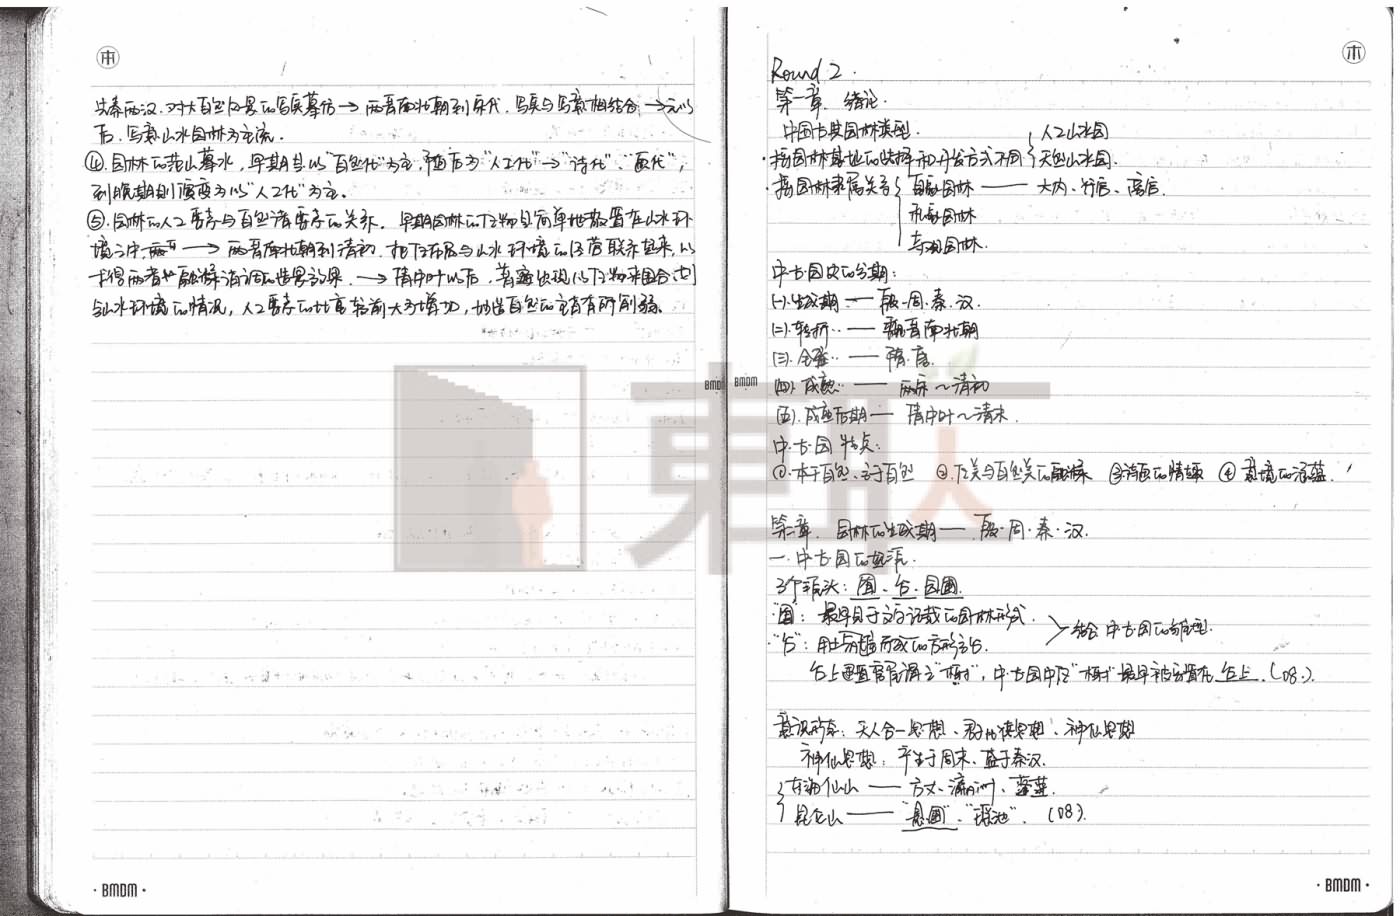 先秦两汉，对大自然风景的写实摹仿→两晋南北朝到宋代，写实与写意相结合→元以
后，写意山水园林为主流。
④.园林的范山摹水，早期是以"自然化"为主，随后为"人工化"→"诗化"、"画化"，
到晚期则演变为以"人工化"为主。
⑤.园林的人工要素与自然诸要素的关系。早期园林的建筑只简单地散置在山水环
境之中 → 两晋南北朝到清初，把建筑布局与山水环境的经营联系起来，以
求得两者融谐调的世界效果。→ 清中叶以后，普遍出现以建筑来围合
与山水环境的情况，人工要素的比重较前大为增加，创造自然的含有有所削弱。
BMDM
本
Round 2.
第一章. 绪论.
中国古典园林类型.
人工山水园
·按园林基址的选择和开发方式不同 天然山水园.
·按园林隶属关系 皇家园林 —— 大内、行宫、离宫.
私家园林
寺观园林.
中古园史的分期:
(一).生成期 — 殷·周·秦·汉.
(二).转折·· — 魏晋南北朝
(三).全盛·· — 隋·唐.
(四).成熟·· — 两宋~清初
(五).成熟后期 — 清中叶~清末.
中·古·园 特点:
①.本于自然、高于自然 ②.建筑美与自然美的融糅 ③诗画的情趣 ④意境的涵蕴.
第二章. 园林的生成期 — 殷·周·秦·汉.
一.中·古·园的起源.
3个源头: 囿、台、园圃.
"囿": 最早见于文字记载的园林形式.
结合 中·古·园的雏型.
"台": 用土堆筑而成的方形高台.
台上建置房屋谓之"榭"，中·古园中建"榭"最早被设置在台上.(08.).
意识形态: 天人合一思想、君子比德思想、神仙思想
神仙思想: 产生于周末、盛于秦汉.
东海仙山 —— 方丈、瀛洲、蓬莱.
昆仑山 —— "悬圃"、"瑶池". (08).
BMDM
BMDM
BMDM
東
人